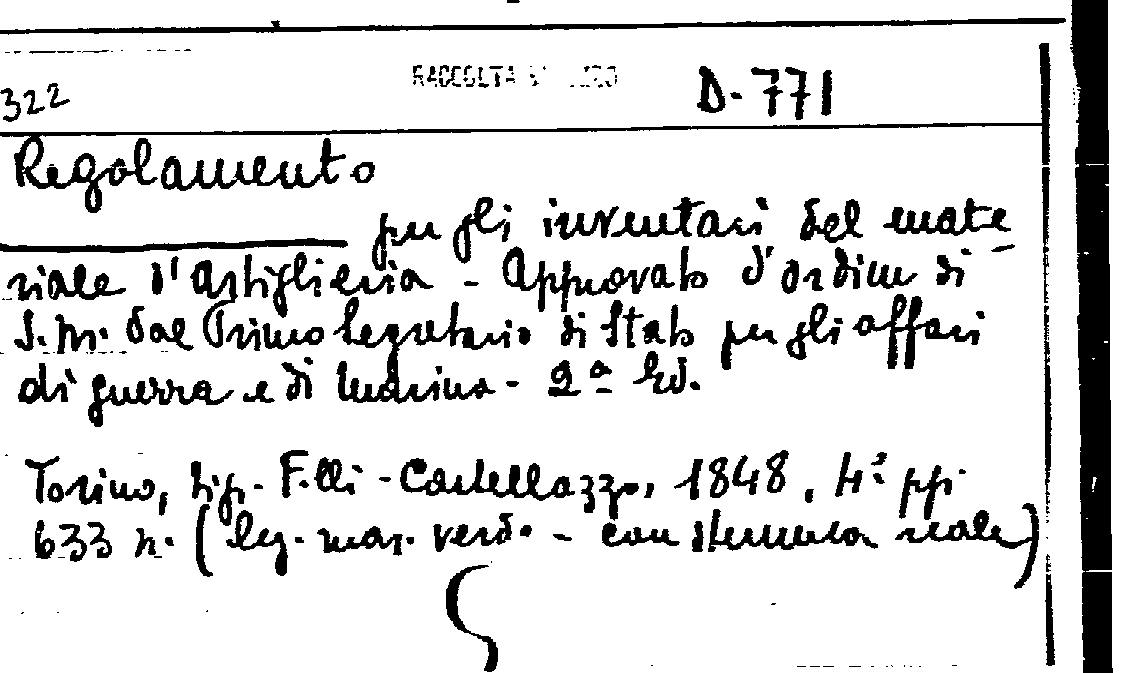 322 RACCOLTA D-771
Regolamento
per gli inventari del mate
riale d'Artiglieria - Approvato d'ordine di
S.M. dal Primo Segretario di Stato per gli affari
di guerra e di Marina - 2ª Ed.
Torino, tip. F.lli - Castellazzo, 1848, 4° pp.
633 n. (leg. mar. verde - con stemma reale)